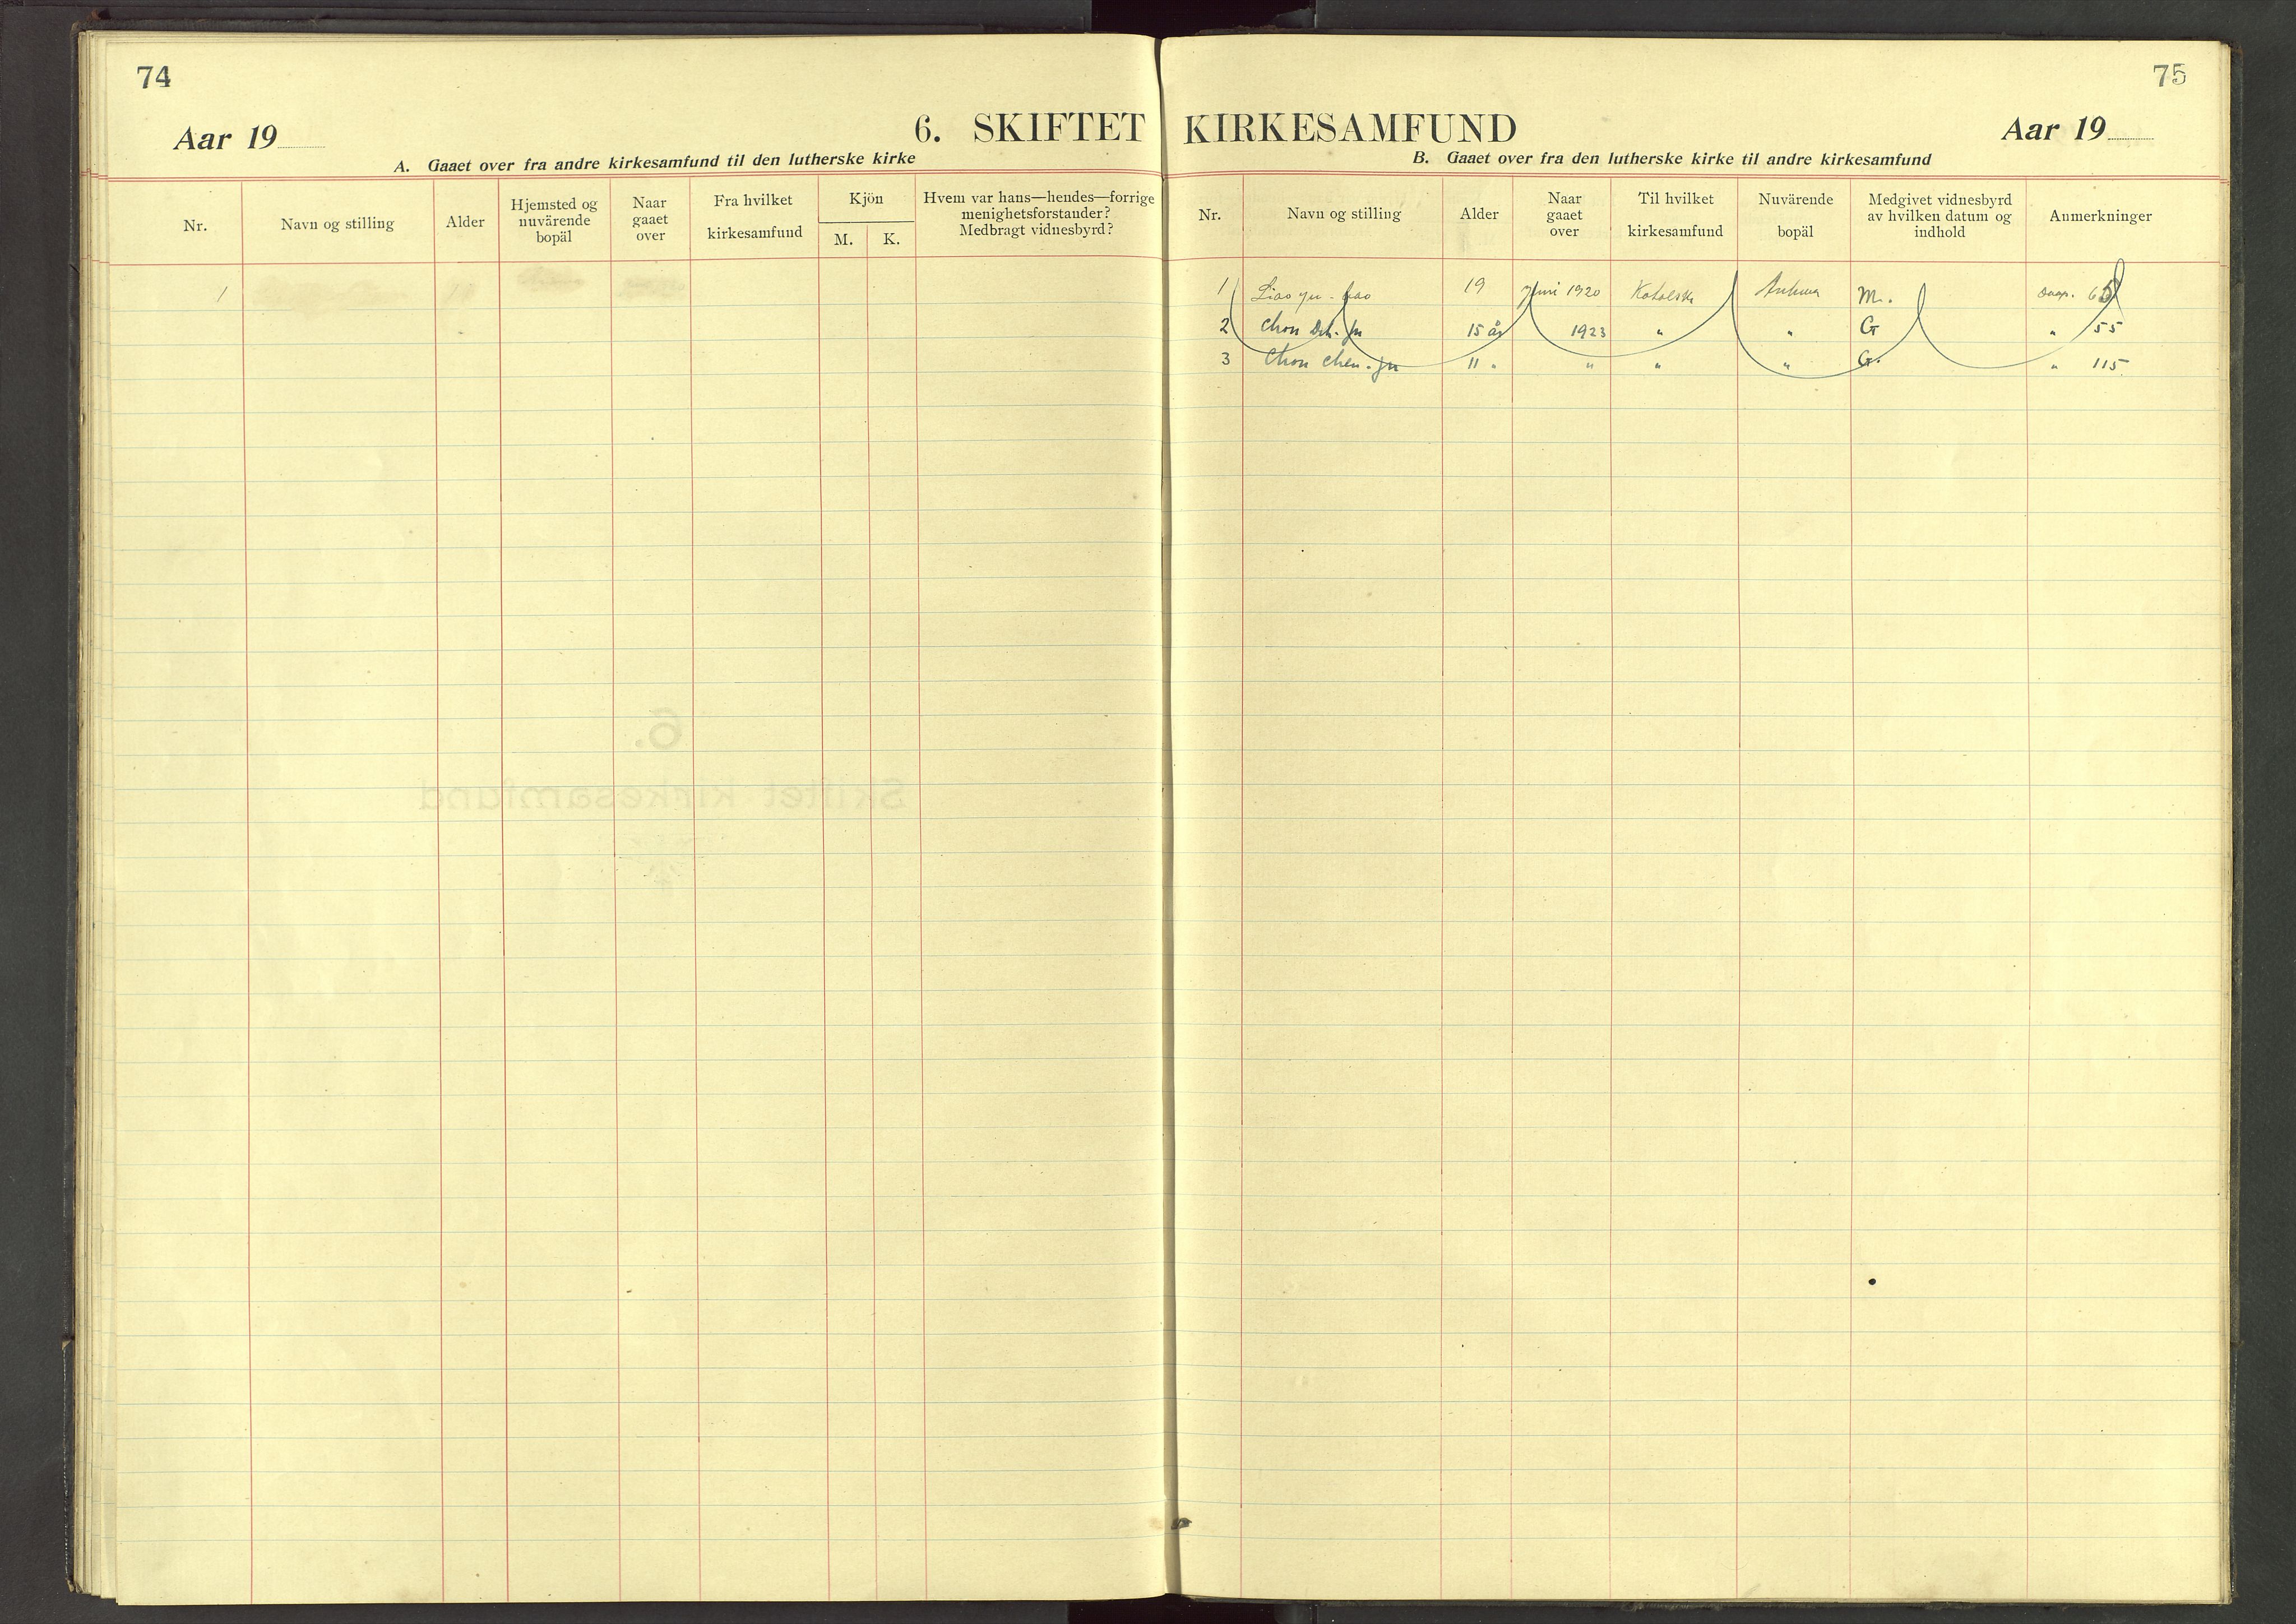 74
Aar 19
6. SKIFTET
A. Gaaet over fra andre kirkesamfund til den lutherske kirke
Nr. Navn og stilling Alder Hjemsted og nuvärende bopäl Naar gaaet over Fra hvilket kirkesamfund Kjön M. K. Hvem var hans—hendes—forrige menighetsforstander? Medbragt vidnesbyrd?
1
75
KIRKESAMFUND
Aar 19
B. Gaaet over fra den lutherske kirke til andre kirkesamfund
Nr. Navn og stilling Alder Naar gaaet over Til hvilket kirkesamfund Nuvärende bopäl Medgivet vidnesbyrd av hvilken datum og indhold Anmerkninger
1 Liao yu - 19 juni 1920 Katolske M. 65
2 Chou 15 år 1923 " " G " 55
3 Chou chen - 11 " " " " G. " 115